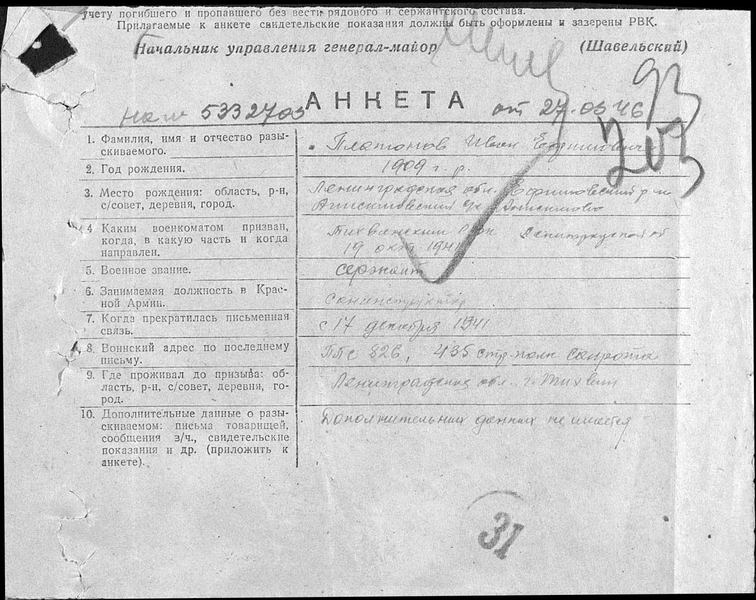 учету погибшего и пропавшего без вести рядового и сержантского состава.
Прилагаемые к анкете свидетельские показания должны быть оформлены и заверены РВК.
Начальник управления генерал-майор (Шавельский)
93
203
на № 5332703 АНКЕТА от 27-03-46
1. Фамилия, имя и отчество разыскиваемого. Платонов Иван Ефимович
2. Год рождения. 1909 г. р.
3. Место рождения: область, р-н, с/совет, деревня, город. Ленинградская обл. Ефимовский р-н
4. Каким военкоматом призван, когда, в какую часть и когда направлен. Тихвинским РВК Ленинградской об
19 окт 1941
5. Военное звание. сержант
6. Занимаемая должность в Красной Армии. Санинструктор
7. Когда прекратилась письменная связь. с 17 декабря 1941
8. Воинский адрес по последнему письму. ППС 826, 435 стр. полк санрота
9. Где проживал до призыва: область, р-н, с/совет, деревня, город. Ленинградская обл. г. Тихвин
10. Дополнительные данные о разыскиваемом: письма товарищей, сообщения в/ч, свидетельские показания и др. (приложить к анкете). Дополнительных данных не имеется
31